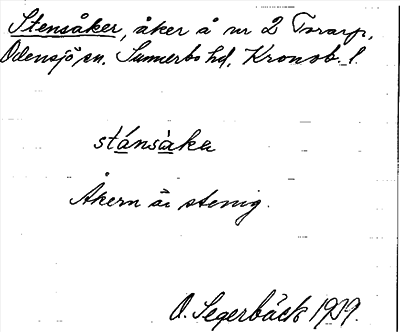 Stensåker, åker å nr 2 Torarp,
Odensjö sn. Sunnerbo hd. Kronob. l.
stánsàka
Åkern är stenig.
O. Segerbäck 1919.